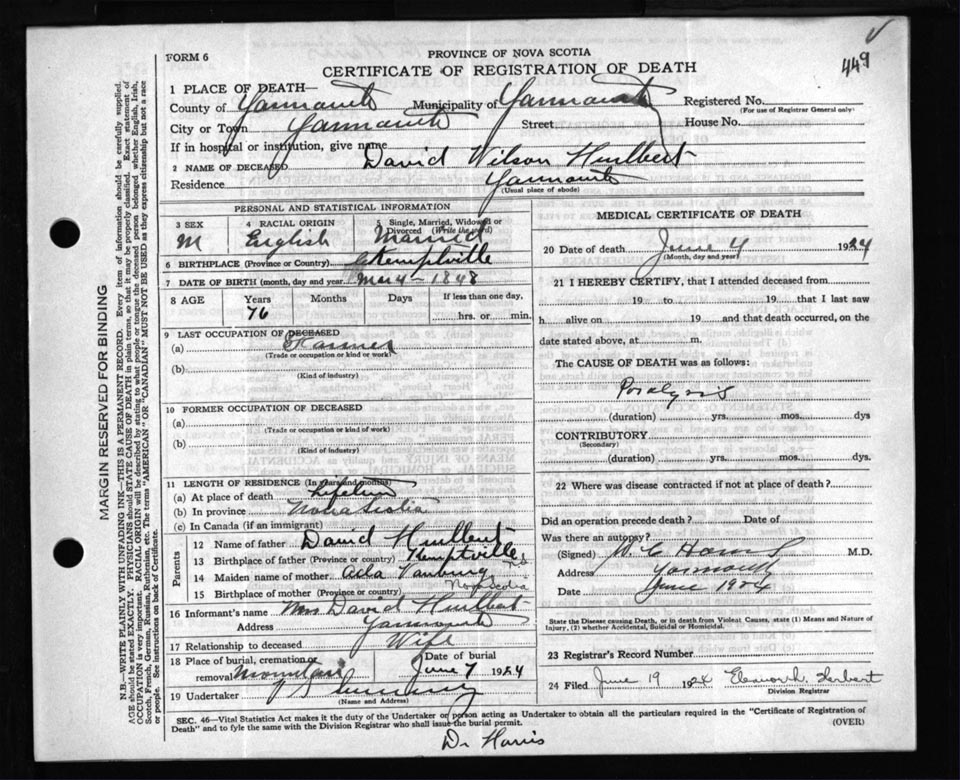 449
FORM 6
PROVINCE OF NOVA SCOTIA
CERTIFICATE OF REGISTRATION OF DEATH
1 PLACE OF DEATH—
County of Yarmouth Municipality of Yarmouth Registered No.
(For use of Registrar General only)
City or Town Yarmouth Street House No.
If in hospital or institution, give name
2 NAME OF DECEASED David Wilson Hurlbert
Residence Yarmouth
(Usual place of abode)
PERSONAL AND STATISTICAL INFORMATION
3 SEX
M
4 RACIAL ORIGIN
English
5 Single, Married, Widowed or Divorced (Write the word)
Married
6 BIRTHPLACE (Province or Country) Kemptville
7 DATE OF BIRTH (month, day and year) 4 - 1848
8 AGE Years Months Days If less than one day,
76 hrs. or min.
9 LAST OCCUPATION OF DECEASED
(a) Farmer
(Trade or occupation or kind or work)
(b)
(Kind of industry)
10 FORMER OCCUPATION OF DECEASED
(a)
(Trade or occupation or kind of work)
(b)
(Kind of industry)
11 LENGTH OF RESIDENCE (In years and months)
(a) At place of death Lifetime
(b) In province Nova Scotia
(c) In Canada (if an immigrant)
Parents
12 Name of father David Hurlbert
13 Birthplace of father (Province or country) Kemptville N.S
14 Maiden name of mother
15 Birthplace of mother (Province or country) Nova Scotia
16 Informant's name Mrs David Hurlbert
Address Yarmouth
17 Relationship to deceased Wife
18 Place of burial, cremation or removal
Date of burial
June 7 1924
19 Undertaker
(Name and Address)
MEDICAL CERTIFICATE OF DEATH
20 Date of death June 4 1924
(Month, day and year)
21 I HEREBY CERTIFY, that I attended deceased from
19 to 19 that I last saw
h alive on 19 and that death occurred, on
date stated above, at m.
The CAUSE OF DEATH was as follows:
Paralysis
(duration) yrs. mos. dys
CONTRIBUTORY
(Secondary)
(duration) yrs. mos. dys
22 Where was disease contracted if not at place of death?
Did an operation precede death? Date of
Was there an autopsy?
(Signed) W C Harris M.D.
Address Yarmouth
Date June 1924
State the Disease causing Death, or in death from Violent Causes, state (1) Means and Nature of Injury, (2) whether Accidental, Suicidal or Homicidal.
23 Registrar's Record Number
24 Filed June 19 1924
Division Registrar
SEC. 46—Vital Statistics Act makes it the duty of the Undertaker or person acting as Undertaker to obtain all the particulars required in the "Certificate of Registration of
Death" and to fyle the same with the Division Registrar who shall issue the burial permit.
(OVER)
Dr Harris
MARGIN RESERVED FOR BINDING
N.B.—WRITE PLAINLY WITH UNFADING INK—THIS IS A PERMANENT RECORD. Every item of information should be carefully supplied.
AGE should be stated EXACTLY. PHYSICIANS should STATE CAUSE OF DEATH in plain terms, so that it may be properly classified. Exact statement of
OCCUPATION is very important. RACIAL ORIGIN will be described by stating to what people or tongue the deceased person belonged whether English, Irish,
Scotch, French, German, Russian, Ruthenian, etc. The terms "AMERICAN" OR "CANADIAN" MUST NOT BE USED as they express citizenship but not a race
See instructions on back of Certificate.